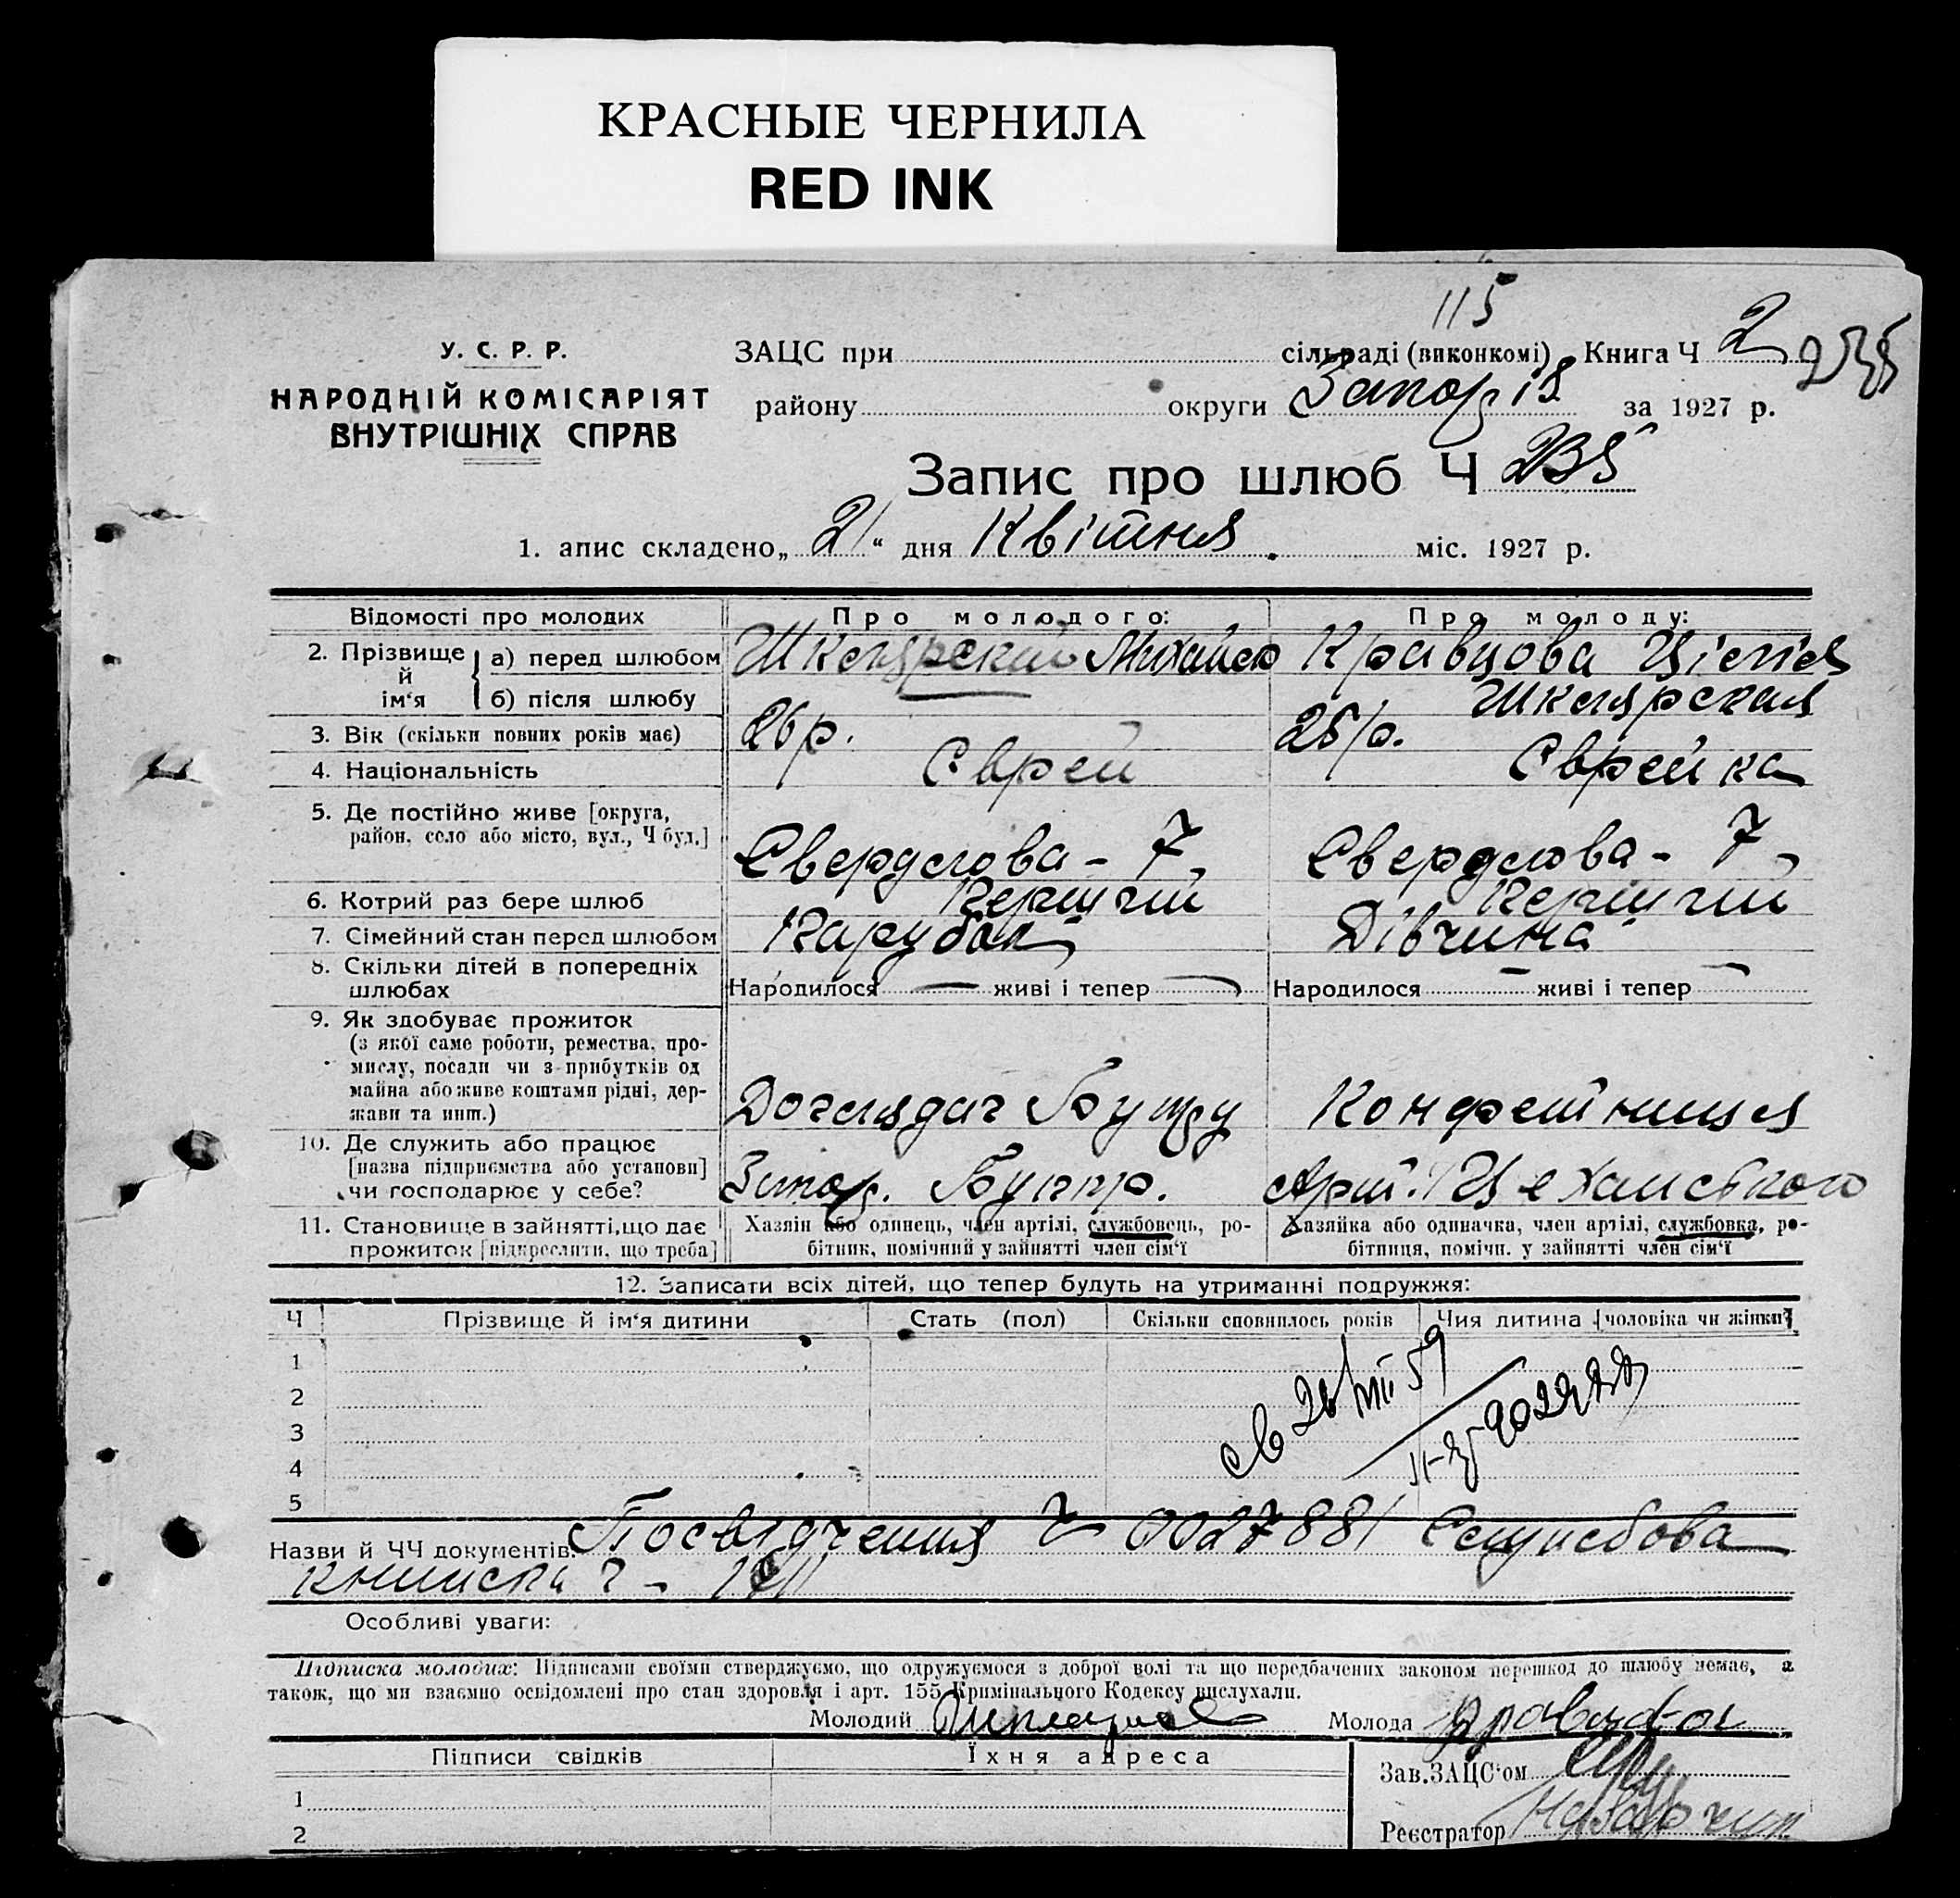 КРАСНЫЕ ЧЕРНИЛА
RED INK
115
У. С. Р. Р.
НАРОДНІЙ КОМІСАРІЯТ
ВНУТРІШНІХ СПРАВ
ЗАЦС при сільраді (виконкомі) Книга Ч 2
235
району округи Запоріз за 1927 р.
Запис про шлюб Ч 235
1. апис складено „ 21 “ дня Квітня міс. 1927 р.
Відомості про молодих
Про молодого:
Про молоду:
2. Прізвище й ім‘я
а) перед шлюбом
Шклярский Михайло
Кравцова Ціпія
б) після шлюбу
Шклярская
3. Вік (скільки повних років має)
26 р.
25 р.
4. Національність
Єврей
Єврейка
5. Де постійно живе [округа,
район, село або місто, вул., Ч буд.]
Свердлова - 7
Свердлова - 7
6. Котрий раз бере шлюб
Перший
Перший
7. Сімейний стан перед шлюбом
Парубок
Дівчина
8. Скільки дітей в попередніх
шлюбах
Народилося — живі і тепер —
Народилося — живі і тепер —
9. Як здобуває прожиток
(з якої саме роботи, ремества, про-
мислу, посади чи з прибутків од
майна або живе коштами рідні, дер-
жави та инш.)
Доглядач Бупру
Конфетниця
10. Де служить або працює
[назва підприємства або установи]
чи господарює у себе?
Запор. Бупр.
Арт.
11. Становище в зайнятті, що дає
прожиток [підкреслити, що треба]
Хазяїн або одинець, член артілі, службовець, ро-
бітник, помічний у зайнятті член сім‘ї
Хазяйка або одиначка, член артілі, службовка, ро-
бітниця, помічн. у зайнятті член сім‘ї
12. Записати всіх дітей, що тепер будуть на утриманні подружжя:
Ч
Прізвище й ім‘я дитини
Стать (пол)
Скільки сповнилось років
Чия дитина [чоловіка чи жінки]
1
2
3
4
5
св 26/VIII 59
Назви й ЧЧ документів: Посвідчення Ч 0027881 Службова
книжка Ч -
Особливі уваги:
Підписка молодих: Підписами своїми стверджуємо, що одружуємося з доброї волі та що передбачених законом перешкод до шлюбу немає, а
також, що ми взаємно освідомлені про стан здоровля і арт. 155 Кримінального Кодексу вислухали.
Молодий
Молода Кравцова
Підписи свідків
Їхня адреса
1
2
Зав. ЗАЦС‘ом
Реєстратор